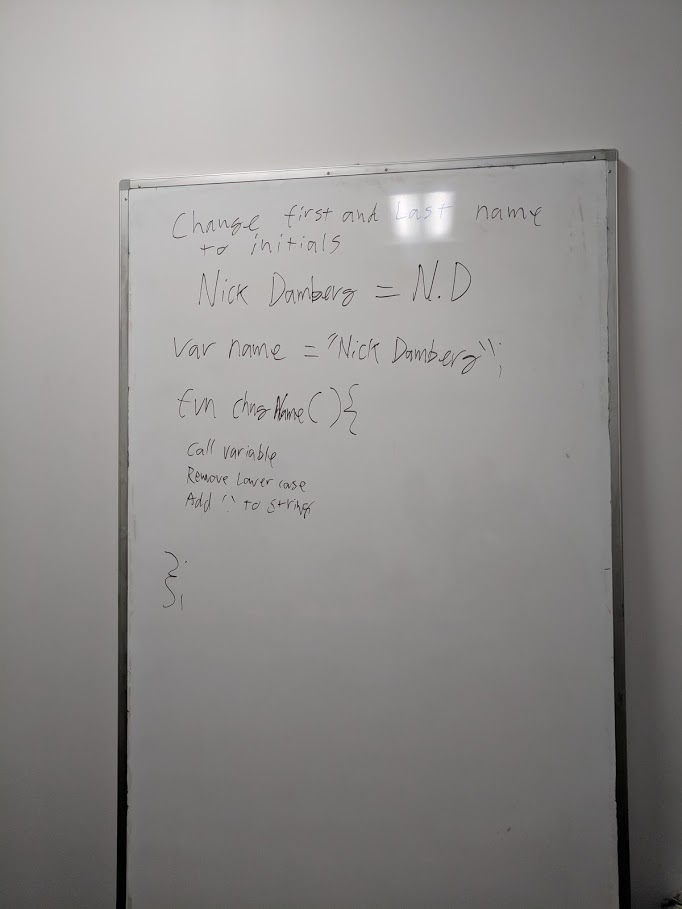 Change first and Last name
to initials
Nick Damberg = N.D
Var name = "Nick Damberg";
fun chngName(){
Call variable
Remove Lower case
Add '.' to string
};